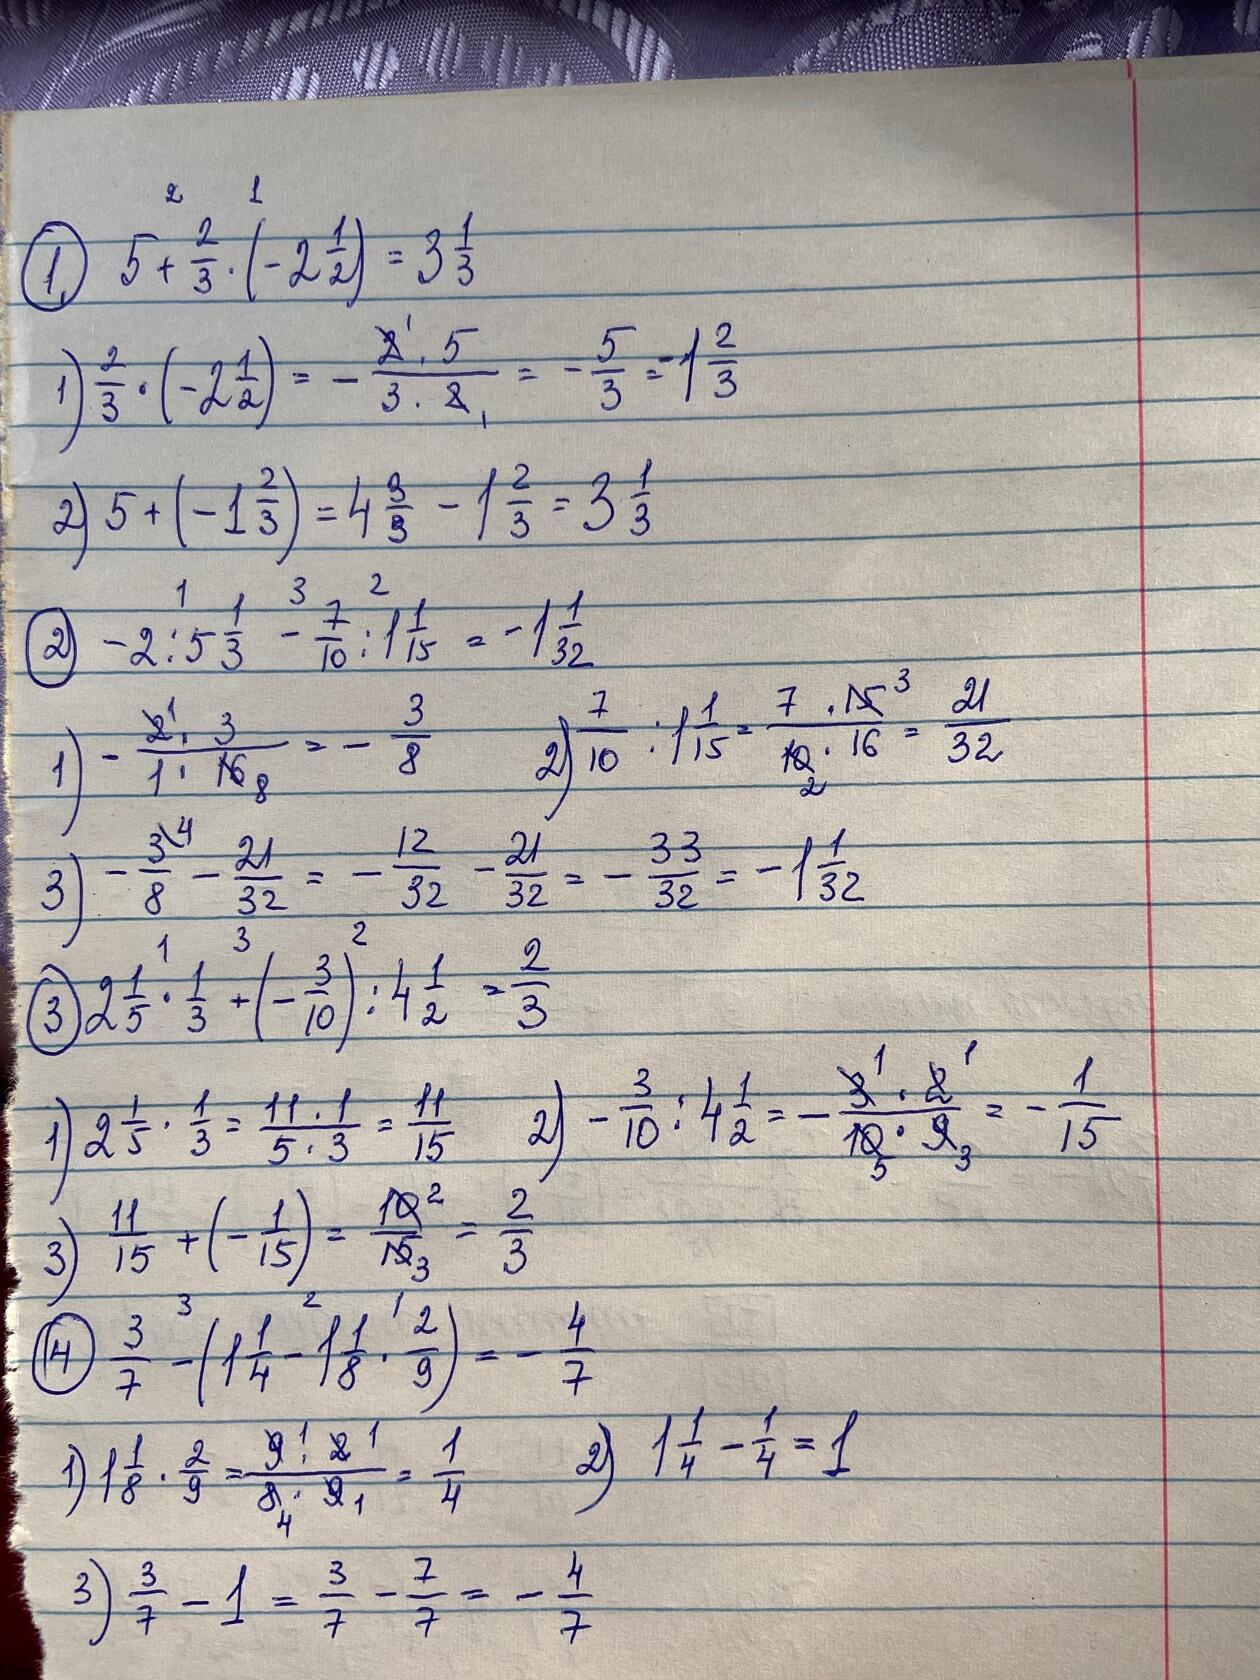 2 1
① 5 + 2/3 · (-2 1/2) = 3 1/3
1) 2/3 · (-2 1/2) = - 2¹ · 5 / 3 · 2₁ = - 5/3 = -1 2/3
2) 5 + (-1 2/3) = 4 3/3 - 1 2/3 = 3 1/3
1 3 2
② -2 : 5 1/3 - 7/10 : 1 1/15 = -1 1/32
1) - 2¹ · 3 / 1 · 16₈ = - 3/8 2) 7/10 : 1 1/15 = 7 · 15³ / 10₂ · 16 = 21/32
3) - 3/8 ⁴ - 21/32 = - 12/32 - 21/32 = - 33/32 = -1 1/32
1 3 2
③ 2 1/5 · 1/3 + (- 3/10) : 4 1/2 = 2/3
1) 2 1/5 · 1/3 = 11 · 1 / 5 · 3 = 11/15 2) - 3/10 : 4 1/2 = - 3¹ · 2¹ / 10₅ · 9₃ = - 1/15
3) 11/15 + (- 1/15) = 10² / 15₃ = 2/3
3 2 1
④ 3/7 - (1 1/4 - 1 1/8 · 2/9) = - 4/7
1) 1 1/8 · 2/9 = 9¹ · 2¹ / 8₄ · 9₁ = 1/4 2) 1 1/4 - 1/4 = 1
3) 3/7 - 1 = 3/7 - 7/7 = - 4/7